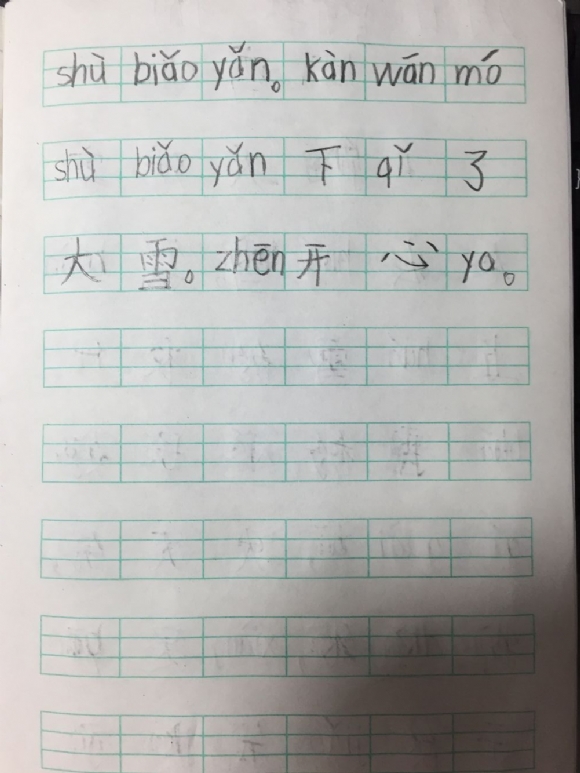 shù biǎo yǎn。kàn wán mó
shù biǎo yǎn 下 qǐ 了
大 雪。zhēn 开 心 ya。